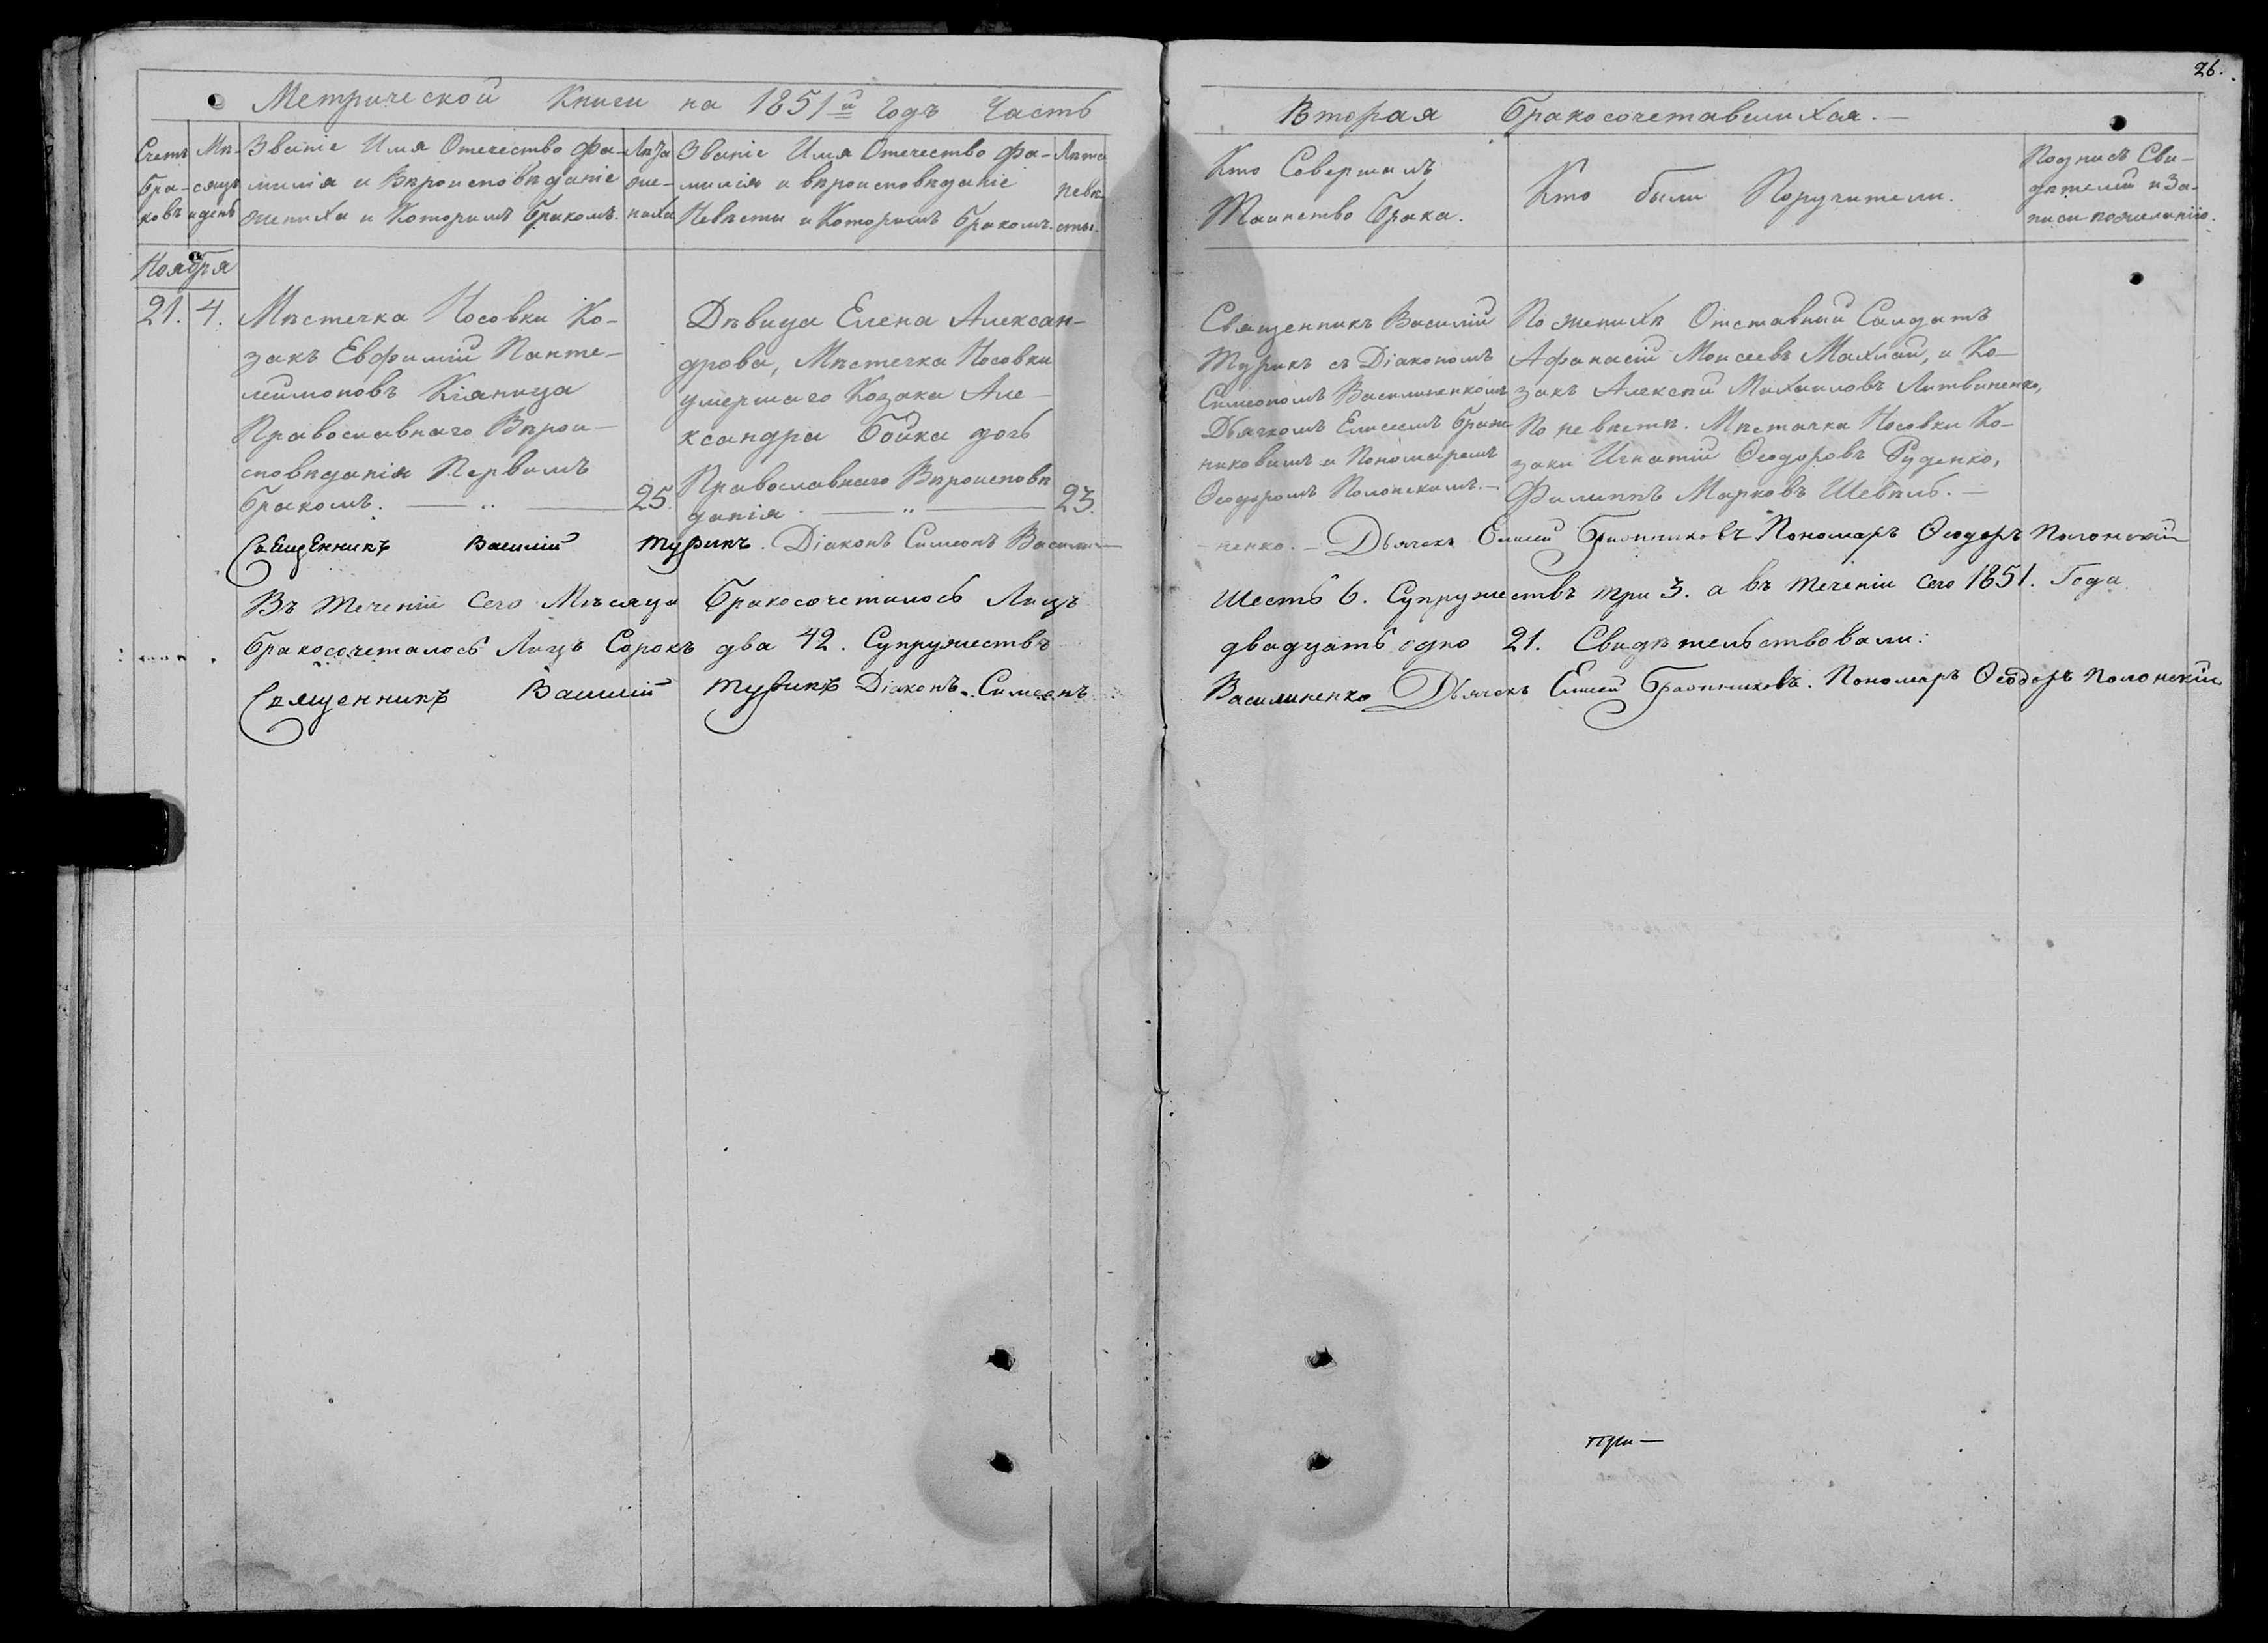 26.
Метрической Книги на 1851й Годъ Часть
Вторая бракосочетавшихся. —
Счетъ бра-ковъ
Мѣ-сяцъ и день
Званіе Имя Отечество фа-
милія и Вѣроисповѣданіе
жениха и Которимъ бракомъ.
Лѣта же-ниха
Званіе Имя Отечество фа-
милія и вѣроисповѣданіе
Невѣсты и Которимъ бракомъ.
Лѣта невѣ-сты.
Кто Совершалъ
Таинство брака.
Кто были Поручители.
Подпись Сви-
дѣтелей и За-
писи по желанію.
Ноября
21. 4.
Мѣстечка Носовки Ко-
закъ Евфимій Панте-
леимоновъ Кіяница
Православнаго Вѣрои-
сповѣданія Первимъ
бракомъ. — „ —
25
Дѣвица Елена Алексан-
дрова, Мѣстечка Носовки
умершаго Козака Але-
ксандра Бойка дочь
Православнаго Вѣроисповѣ
данія. — „ —
23.
Священникъ Василій
Турикъ съ Діакономъ
Симеономъ Василиненкомъ
Дьячкомъ Елисеемъ
никовимъ и Пономаремъ
Ѳеодоромъ Полонскимъ. —
По женихѣ Отставний Салдатъ
Афанасій Моисеевъ Махлай, и Ко-
закъ Алексѣй Михаиловъ Литвиненко,
По невѣстѣ. Мѣстечка Носовки Ко-
заки Игнатій Ѳеодоровъ Руденко,
Филиппъ Марковъ Шевель. —
Священникъ Василій Турикъ. Діаконъ Симеонъ Васили-
ненко. — Дьячекъ Елисей Пономарь Ѳеодоръ Полонскій
Въ теченіи Сего Мѣсяца бракосочеталось Лицъ
Шесть 6. Супружествъ три 3. а въ теченіи Сего 1851. Года
бракосочеталось Лицъ Сорокъ два 42. Супружествъ
двадцать одно 21. Свидѣтельствовали:
Священникъ Василій Турикъ Діаконъ. Симеонъ
Василиненко Дьячекъ Елисей Пономарь Ѳеодоръ Полонскій